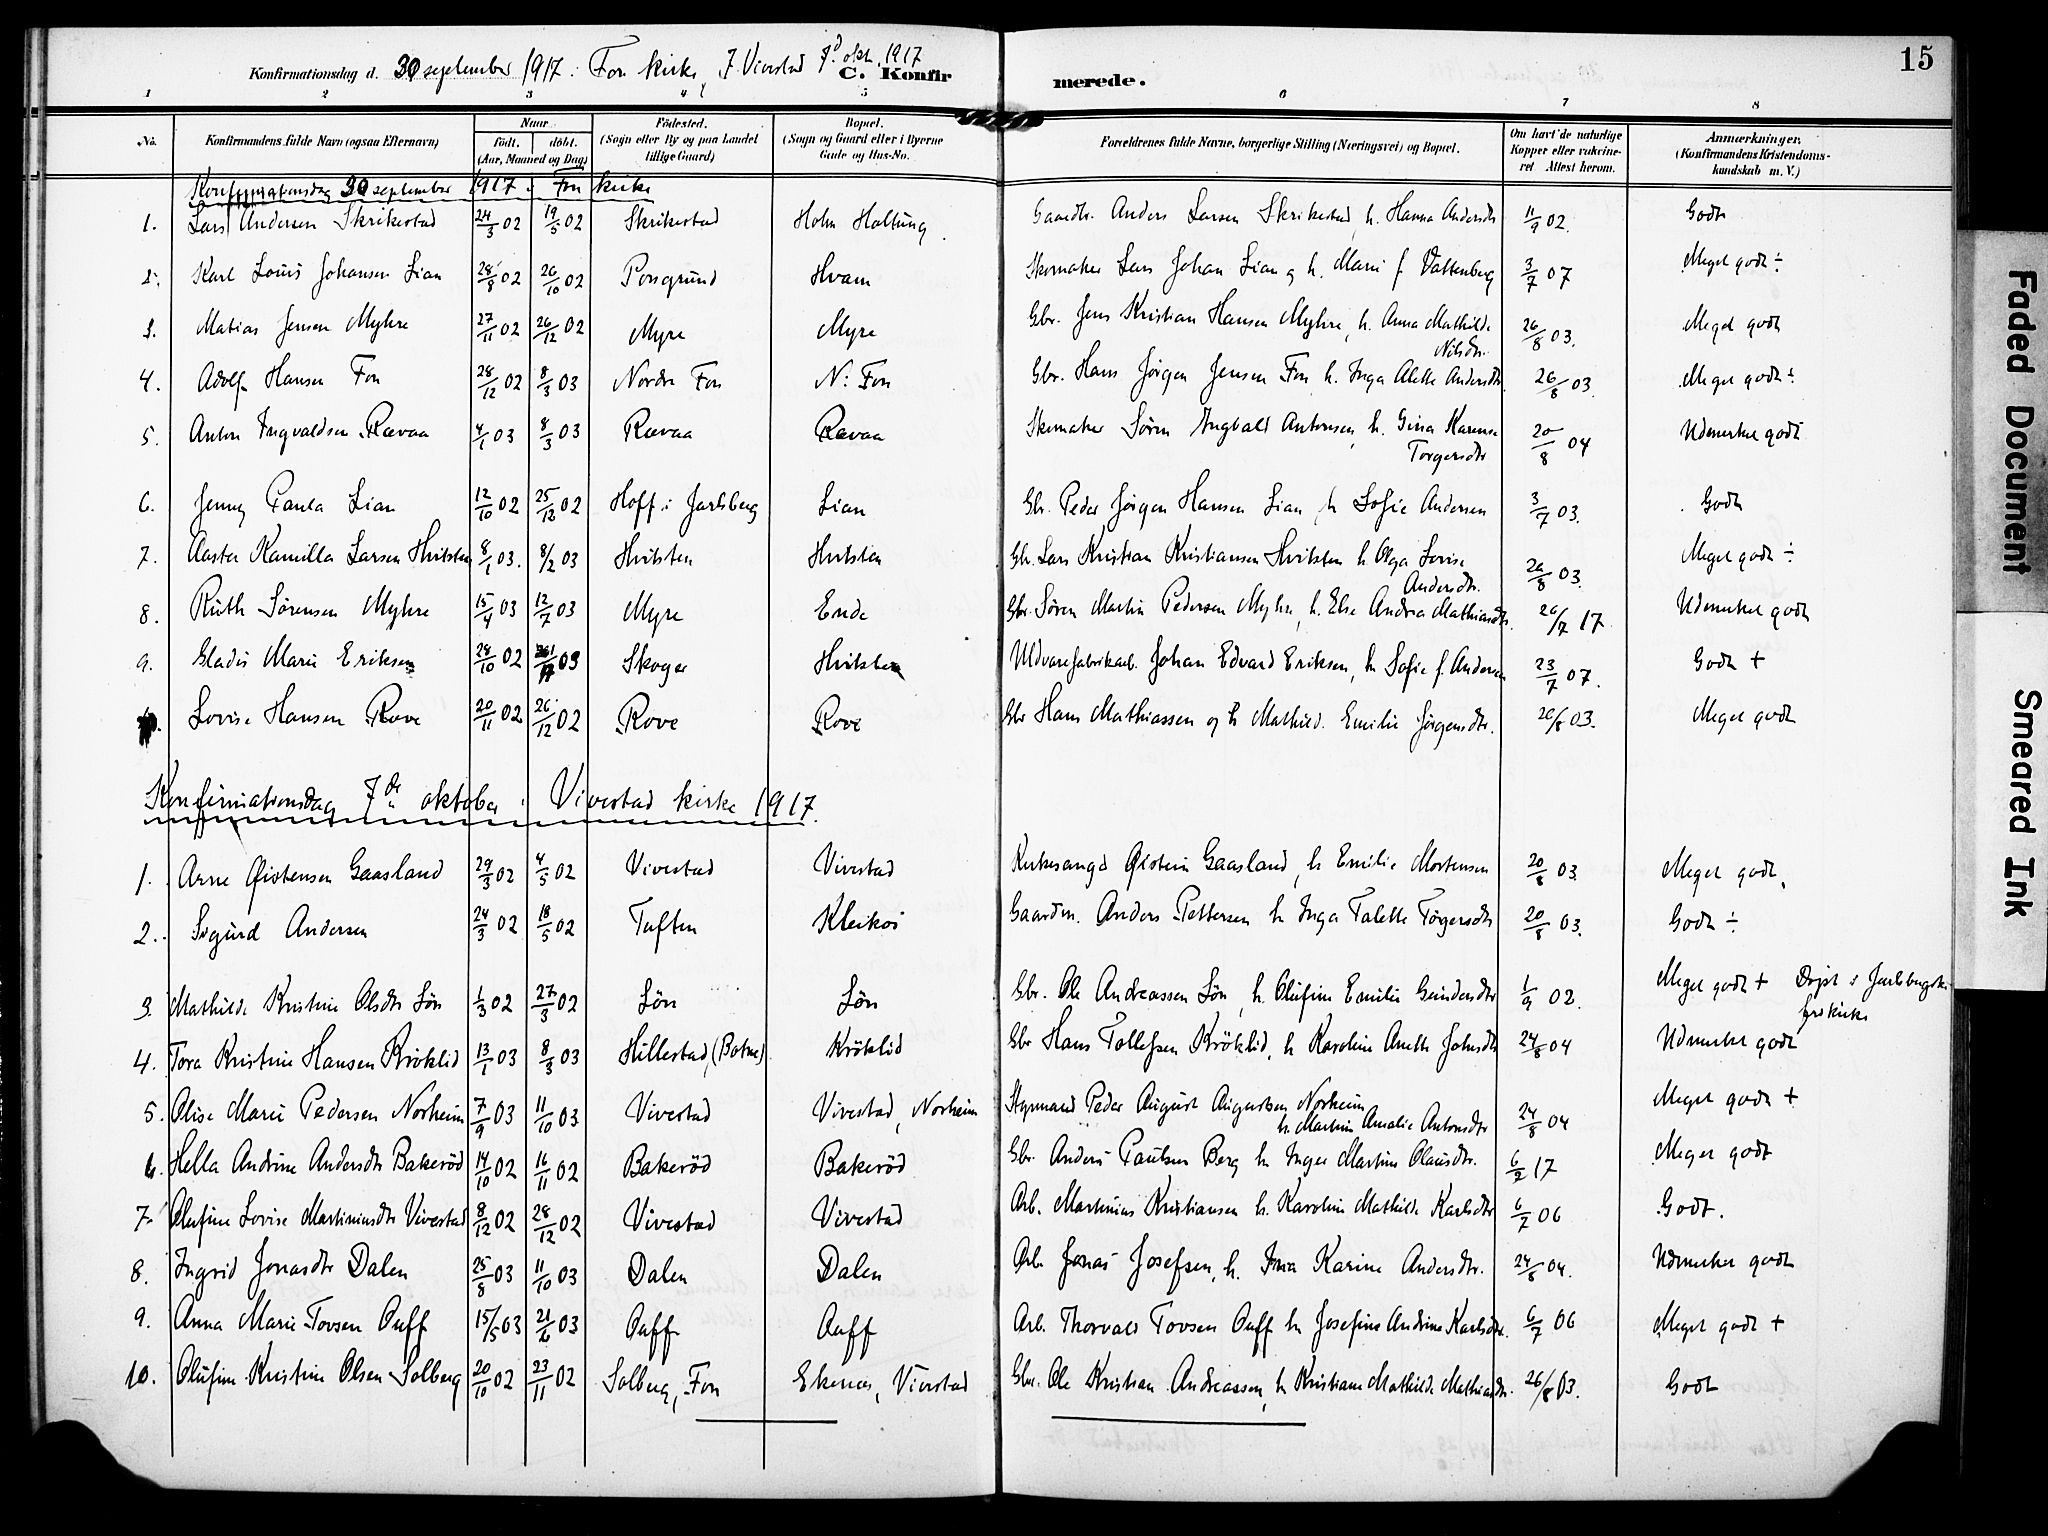 15
Konfirmationsdag d. 30 september 1917 i Fon kirke, I Vivestad 7d okt. 1917
C. Konfirmerede.
1 2 3 4 5 6 7 8
No. Konfirmandens fulde Navn (ogsaa Efternavn) Naar født. døbt. (Aar, Maaned og Dag) Fødested. (Sogn eller By og paa Landet tillige Gaard) Bopæl. (Sogn og Gaard eller i Byerne Gade og Hus-No. Forældrenes fulde Navne, borgerlige Stilling (Næringsvei) og Bopæl. Om havt de naturlige Kopper eller vakcineret Attest herom. Anmærkninger. (Konfirmandens Kristendomskundskab m. V.)
Konfirmationsdag 30 september 1917 i Fon kirke
1. Lars Andersen Skrikestad 24/3 02 19/5 02 Skrikestad Holm Haltung. Gaardbr. Anders Larsen Skrikestad, h. Hanna Andersdtr 11/9 02. Godt
2. Karl Louis Johansen Lian 28/8 02 26/10 02 Porsgrund Hvam Skomaker Lars Johan Lian og h. Marie f. Vattenberg 3/7 07 Meget godt ÷
3. Matias Jensen Myhre 27/11 02 26/12 02 Myre Myre Gbr. Jens Kristian Hansen Myhre, h. Anna Mathilde Nilsdtr. 26/8 03. Meget godt
4. Adolf Hansen Fon 28/12 02 8/3 03 Nordre Fon N: Fon Gbr. Hans Jörgen Jensen Fon h. Inga Alette Andersdtr. 26/8 03. Meget godt ÷
5. Anton Ingvaldsen Rævaa 4/1 03 8/3 03 Rævaa Rævaa Skomaker Sören Ingvald Antonsen, h. Gina Karense Torgersdtr 20/8 04 Udmerket godt
6. Jenny Paula Lian 12/10 02 25/12 02 Hoff i Jarlsberg Lian Gbr. Peder Jörgen Hansen Lian, h Sofie Andersen 3/7 03. Godt
7. Aasta Kamilla Larsen Hvitsten 8/1 03. 8/2 03 Hvitsten Hvitsten Gbr. Lars Kristian Kristiansen Hvitsten h. Olga Lovise Andersdtr. 26/8 03. Meget godt ÷
8. Ruth Sørensen Myhre 15/4 03 12/7 03 Myre Ende Gbr. Sören Martin Pedersen Myhre, h. Else Andrea Mathiasdtr. 26/7 17 Udmerket godt
9. Gladis Marie Eriksen 28/10 02 03 Skoger Hvitsten Uldvarefabrikarb. Johan Edvard Eriksen, h. Sofie f. Andersen 23/7 07. Godt +
10. Lovise Hansen Rove 20/11 02 26/12 02 Rove Rove Gbr Hans Mathiassen og h Mathild. Emilie Jörgensdtr. 26/8 03. Meget godt
Konfirmationsdag 7de oktober i Vivestad kirke 1917.
1. Arne Øistensen Gaasland 29/3 02 4/5 02 Vivestad Vivestad Kirkesanger Øistein Gaasland, h Emilie Mortensen 20/8 03. Meget godt.
2. Sigurd Andersen 24/3 02 18/5 02 Tuften Kleikoi Gaardm. Anders Pettersen h Inga Talette Torgersdtr 20/8 03. Godt ÷
3. Mathilde Kristine Olsdtr Lön 1/3 02 27/3 02 Lön Lön Gbr. Ole Andreassen Lön, h. Olufine Emilie Gundersdtr 1/9 02. Meget godt + Døpt i Jarlsbergske frikirke
4. Tora Kristine Hansen Kröklid 13/1 03 8/3 03 Hillestad, (Botne) Kröklid Gbr Hans Tollefsen Kröklid, h Karoline Anette Johsdtr 24/8 04 Udmerket godt
5. Olise Marie Pedersen Norheim 7/9 03 11/10 03 Vivestad Vivestad, Norheim Styrmand Peder August Augustsen Norheim h. Martine Amalie Antonsdtr 24/8 04 Meget godt +
6. Hella Andrine Andersdtr Bakerød 14/10 02 16/11 02 Bakerød Bakerød Gbr. Anders Paulsen Berg h Inger Martine Olausdtr. 6/2 17 Meget godt
7. Olufine Lovise Martiniusdtr Vivestad 8/12 02 28/12 02 Vivestad Vivestad Arb. Martinius Kristiansen h. Karoline Mathilde Karlsdtr 6/7 06 Godt.
8. Ingrid Jonasdtr Dalen 25/8 03 11/10 03 Dalen Dalen Arb. Jonas Josefsen, h. Ina Karine Andersdtr. 24/8 04. Udmerket godt
9. Anna Marie Tovsen Auff 15/5 03 21/6 03 Auff Auff Arb. Thorvald Tovsen Auff h Josefine Andrine Karlsdtr. 6/7 06 Meget godt +
10. Olufine Kristine Olsen Solberg 20/10 02 23/11 02 Solberg, Fon Ekenes, Vivestad Gbr. Ole Kristian Andreassen, h Kristiane Mathilde Mathiasdtr. 26/8 03. Godt
Faded Document
Smeared Ink